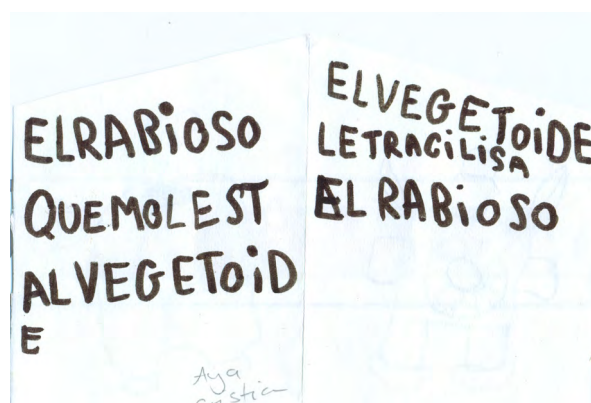 ELRABiOSO
QUEMOLEST
ALVEGETOiD
E
Aya
ELVEGETOiDE
LETRAGiLiSA
AL RABiOSO